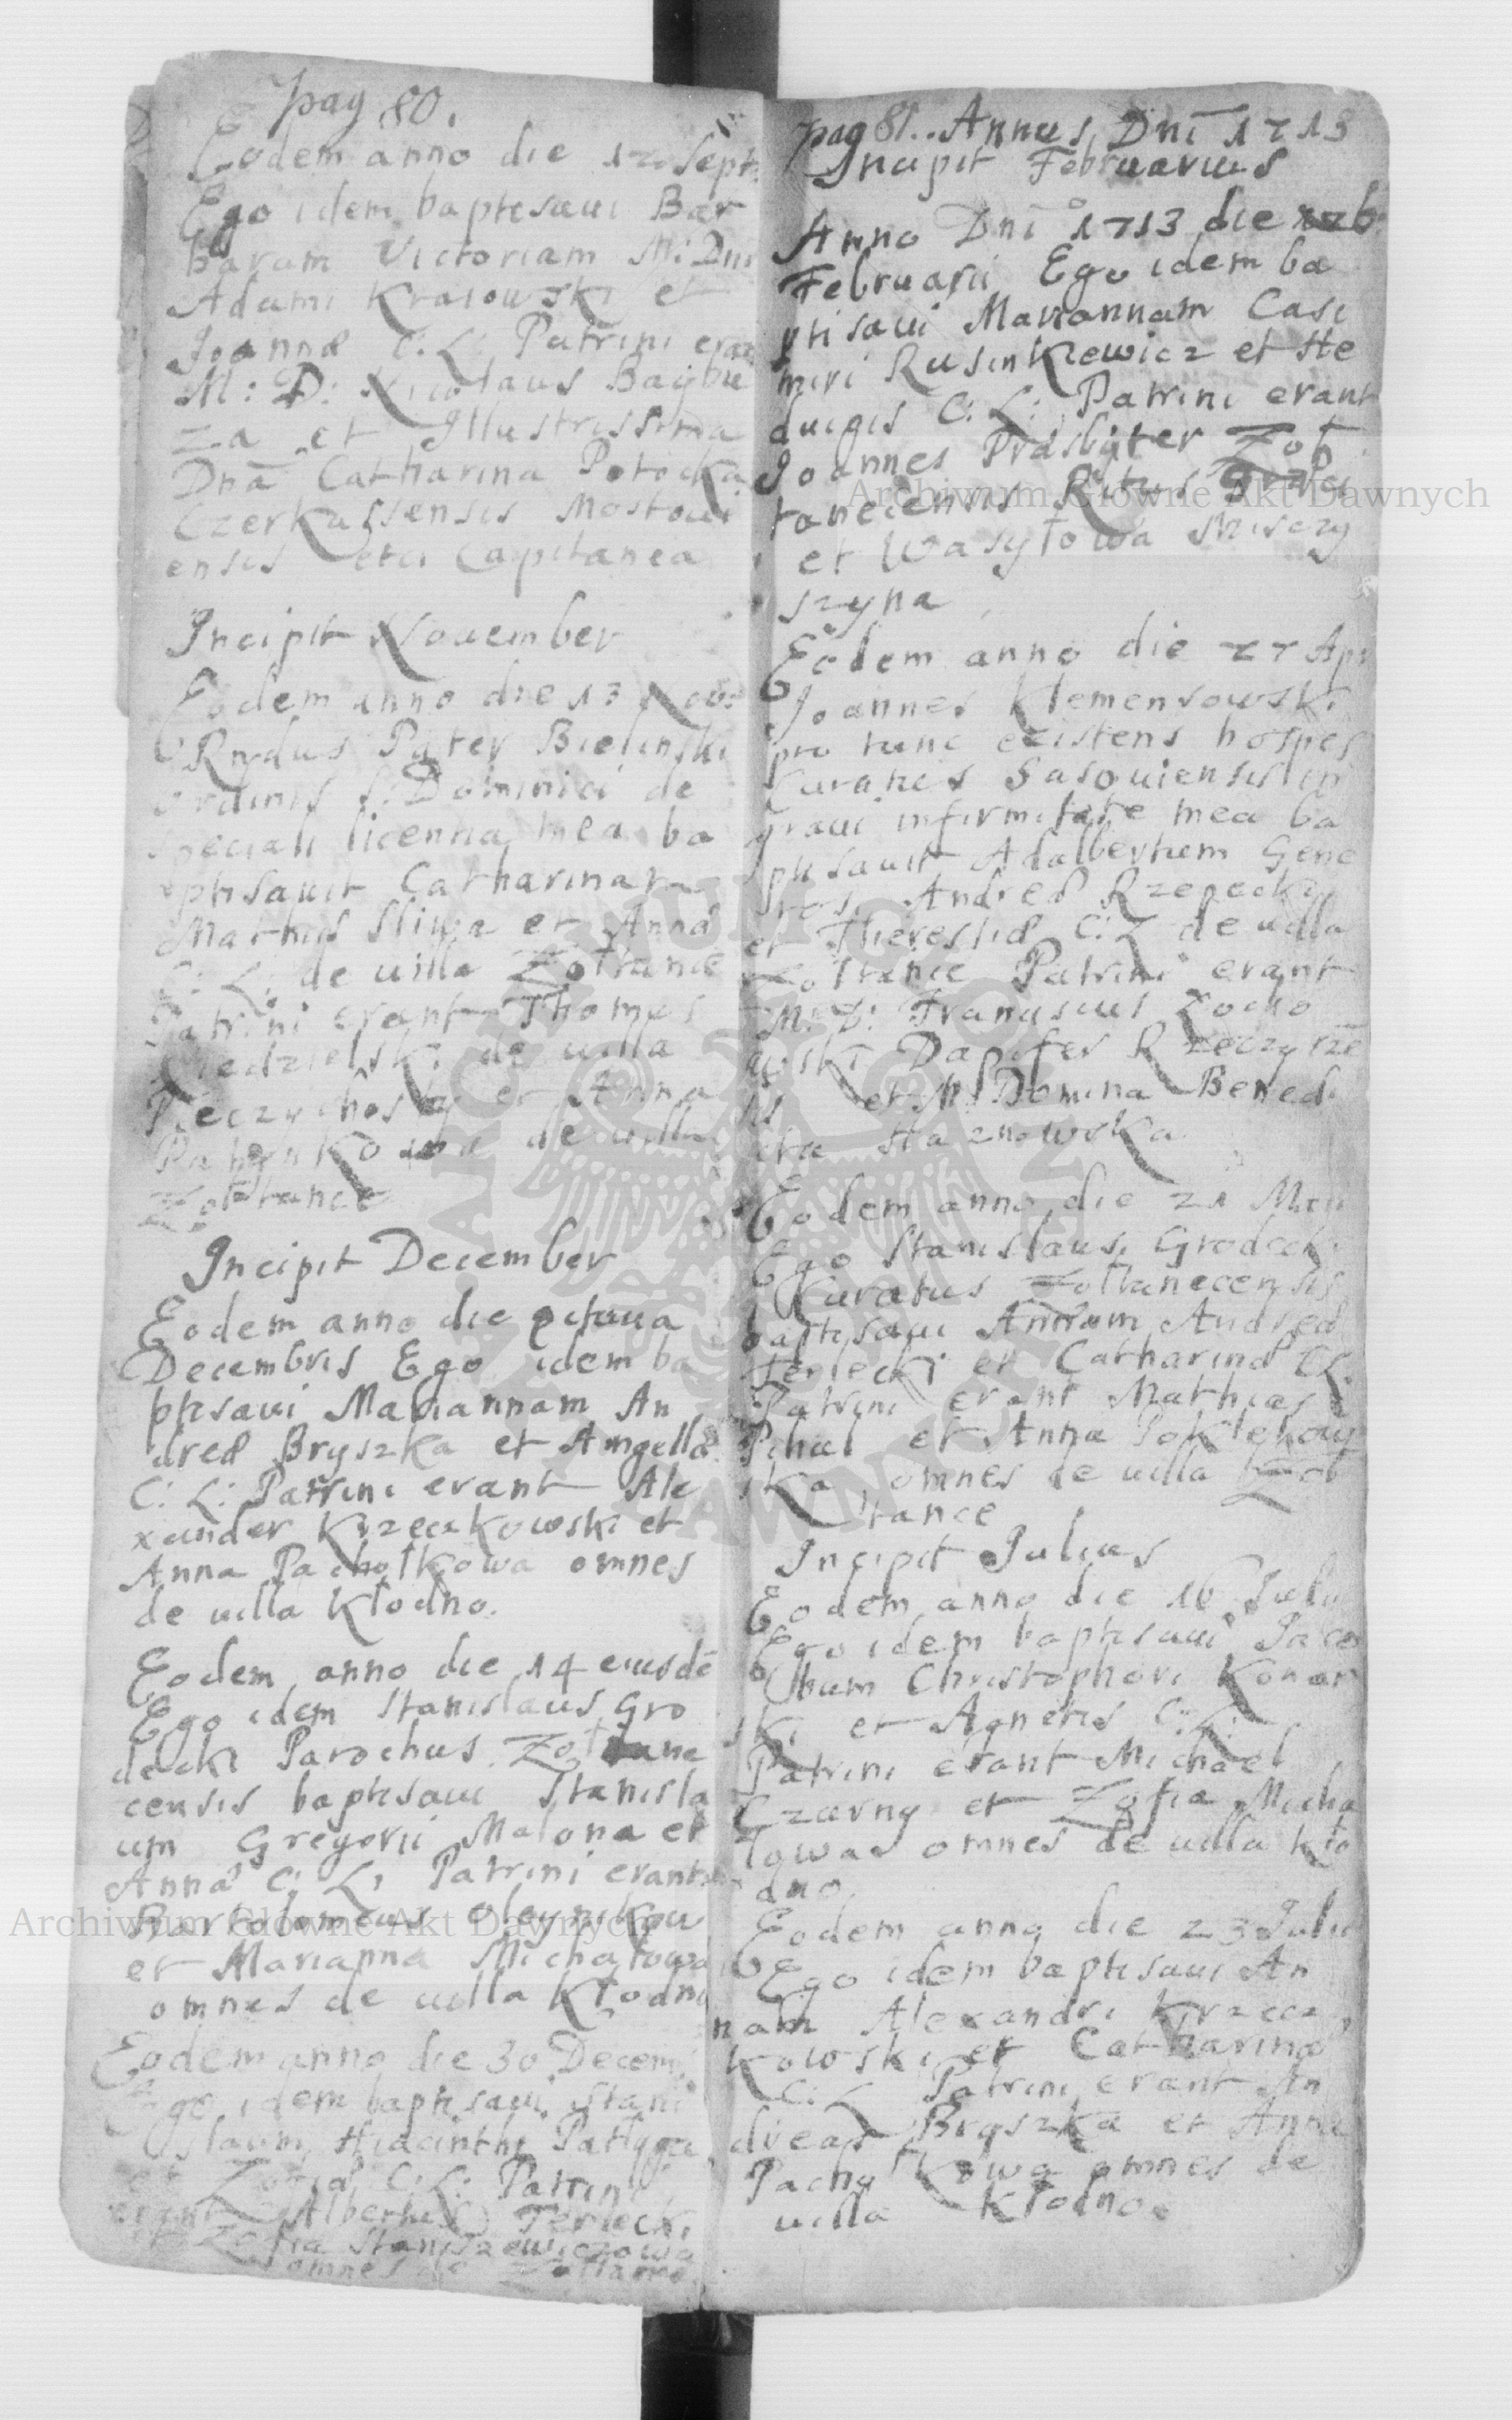 pag 80.
Eodem anno die 12 Sept:
Ego idem baptisaui Bar
baram Victoriam M: Dni
Adami Kraiowski et
Joannæ C: L: Patrini erant
M: D: Nicolaus Baybu
za et Illustrissima
Dna Catharina Potocka
Czerkassensis Mostoui
ensis etc: Capitanea
Incipit Nouember
Eodem anno die 13 Nou:
Rndus Pater Bielinski
Ordinis S: Dominici de
speciali licentia mea ba
ptisauit Catharinam
Mathiæ Sliwa et Annæ
C: L: de uilla Zołtance
Patrini erant Thomas
Niedzielski de uilla
Pieczychosty et Anna
de uilla
Zołtance
Incipit December
Eodem anno die octaua
Decembris Ego idem ba
ptisaui Mariannam An
dreæ Bryszka et Angellæ
C: L: Patrini erant Ale
xander Krzeczkowski et
Anna Pachołkowa omnes
de uilla Kłodno.
Eodem anno die 14 eiusdē
Ego idem Stanislaus Gro
decki Parochus Zołtane
censis baptisaui Stanisla
um Gregorii Malona et
Annæ C: L: Patrini erant
Bartolomeus Oleynikow
et Marianna Michałowa
omnes de uilla Kłodno
Eodem anno die 30 Decem:
Ego idem baptisaui Stani
slaum Hiacinthi Pałyga
et Zofiæ C: L: Patrini
erant Albertus Terlecki
et Zofia Staniszewiczowa
omnes de Zołtance
pag 81. Annus Dni 1713
Incipit Februarius
Anno Dni 1713 die
Februarii Ego idem ba
ptisaui Mariannam Casi
miri Rusinkiewicz et He
duigis C: L: Patrini erant
Joannes Præsbyter Zoł
tanecensis Ritus Græci
et Wasyłowa
szyna
Eodem anno die 27 Apr
Joannes Klemensowski
pro tunc existens hospes
Curatus Sasouiensis in
graui infirmitate mea ba
ptisauit Adalbertum Gene
rosi Andreæ Rzepecki
et Theresiæ C: L: de uilla
Zołtance Patrini erant
M: D: Franciscus Zocho
wski Dapifer Rzeczyce
sis et M: Domina Benedi
cta Haznowska
Eodem anno die 21 Maii
Ego Stanislaus Grodecki
Curatus Zołtanecensis
baptisaui Annam Andreæ
Terlecki et Catharinæ C: L:
Patrini erant Mathias
Pihul et Anna Poklekow
ska omnes de uilla Zoł
tance
Incipit Julius
Eodem anno die 16 Julii
Ego idem baptisaui Jaco
bum Christophori Konar
ski et Agnetis C: L:
Patrini erant Michael
Czarny et Zofia Micha
lowa omnes de uilla Kło
dno.
Eodem anno die 23 Julii
Ego idem baptisaui An
nam Alexandri Krzecz
kowski et Catharinæ
C: L: Patrini erant An
dreas Bryszka et Anna
Pachołkowa omnes de
uilla Kłodno.
Archiwum Główne Akt Dawnych
Archiwum Główne Akt Dawnych
ARCHIWUM GŁÓWNE AKT DAWNYCH